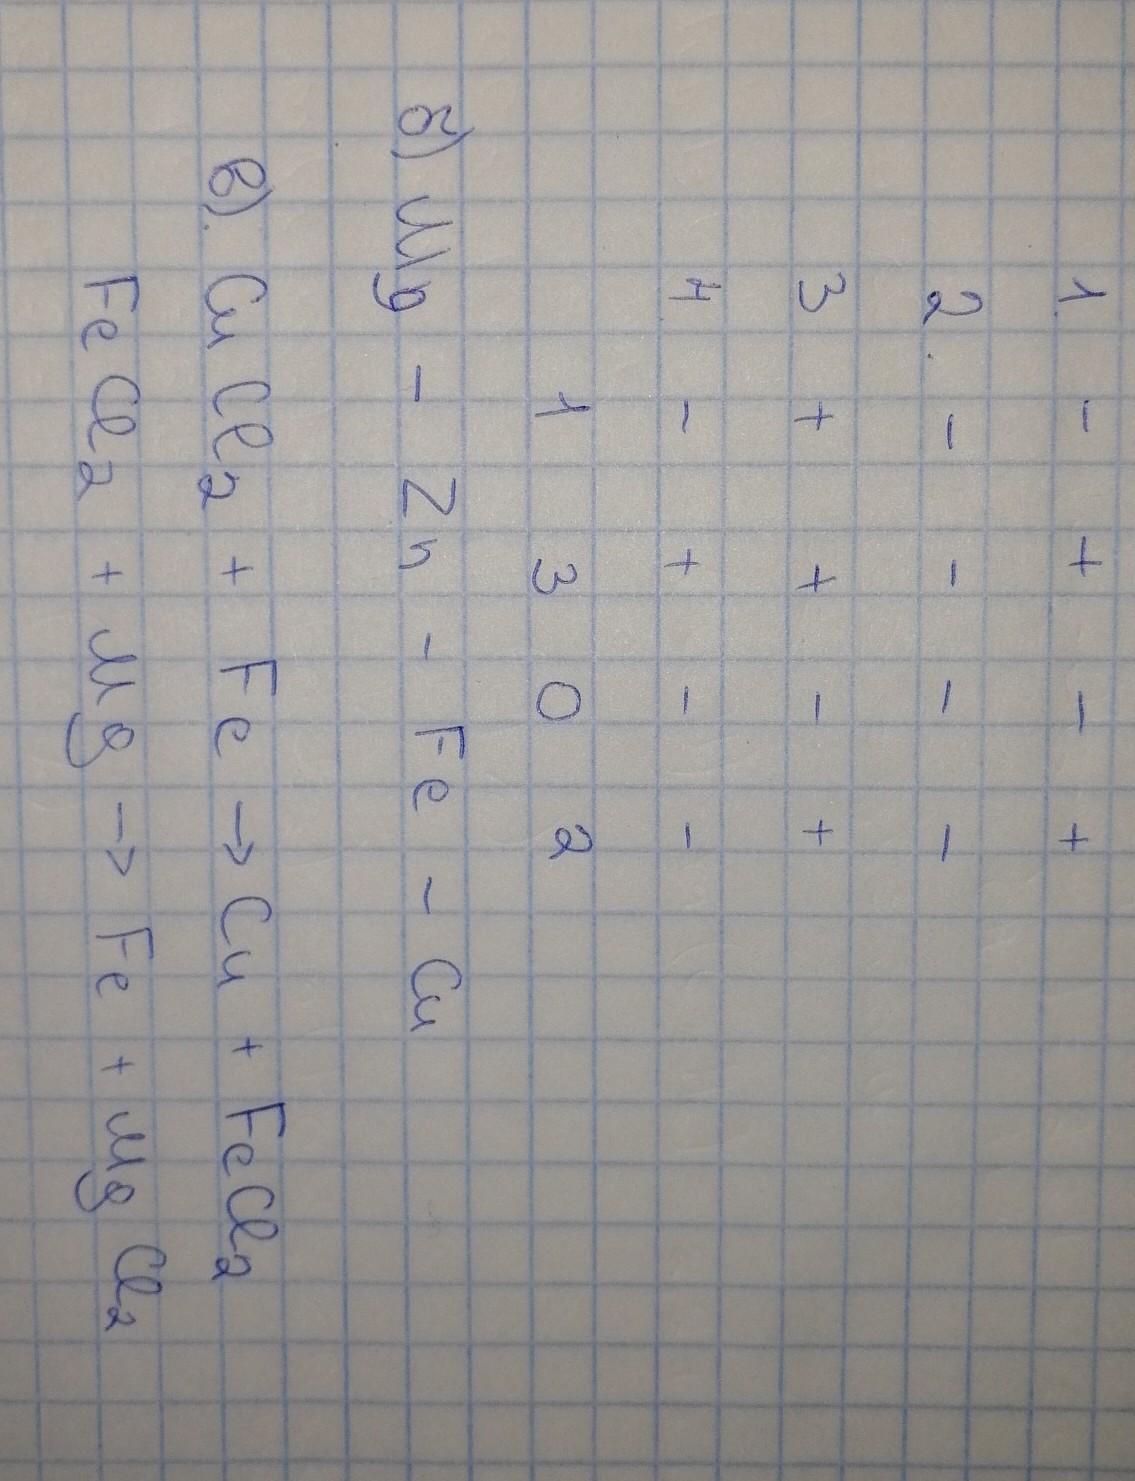 1. - + - +
2. - - - -
3 + + - +
4 - + - -
1 3 0 2
б) Mg - Zn - Fe - Cu
в) CuCl2 + Fe → Cu + FeCl2
FeCl2 + Mg → Fe + MgCl2